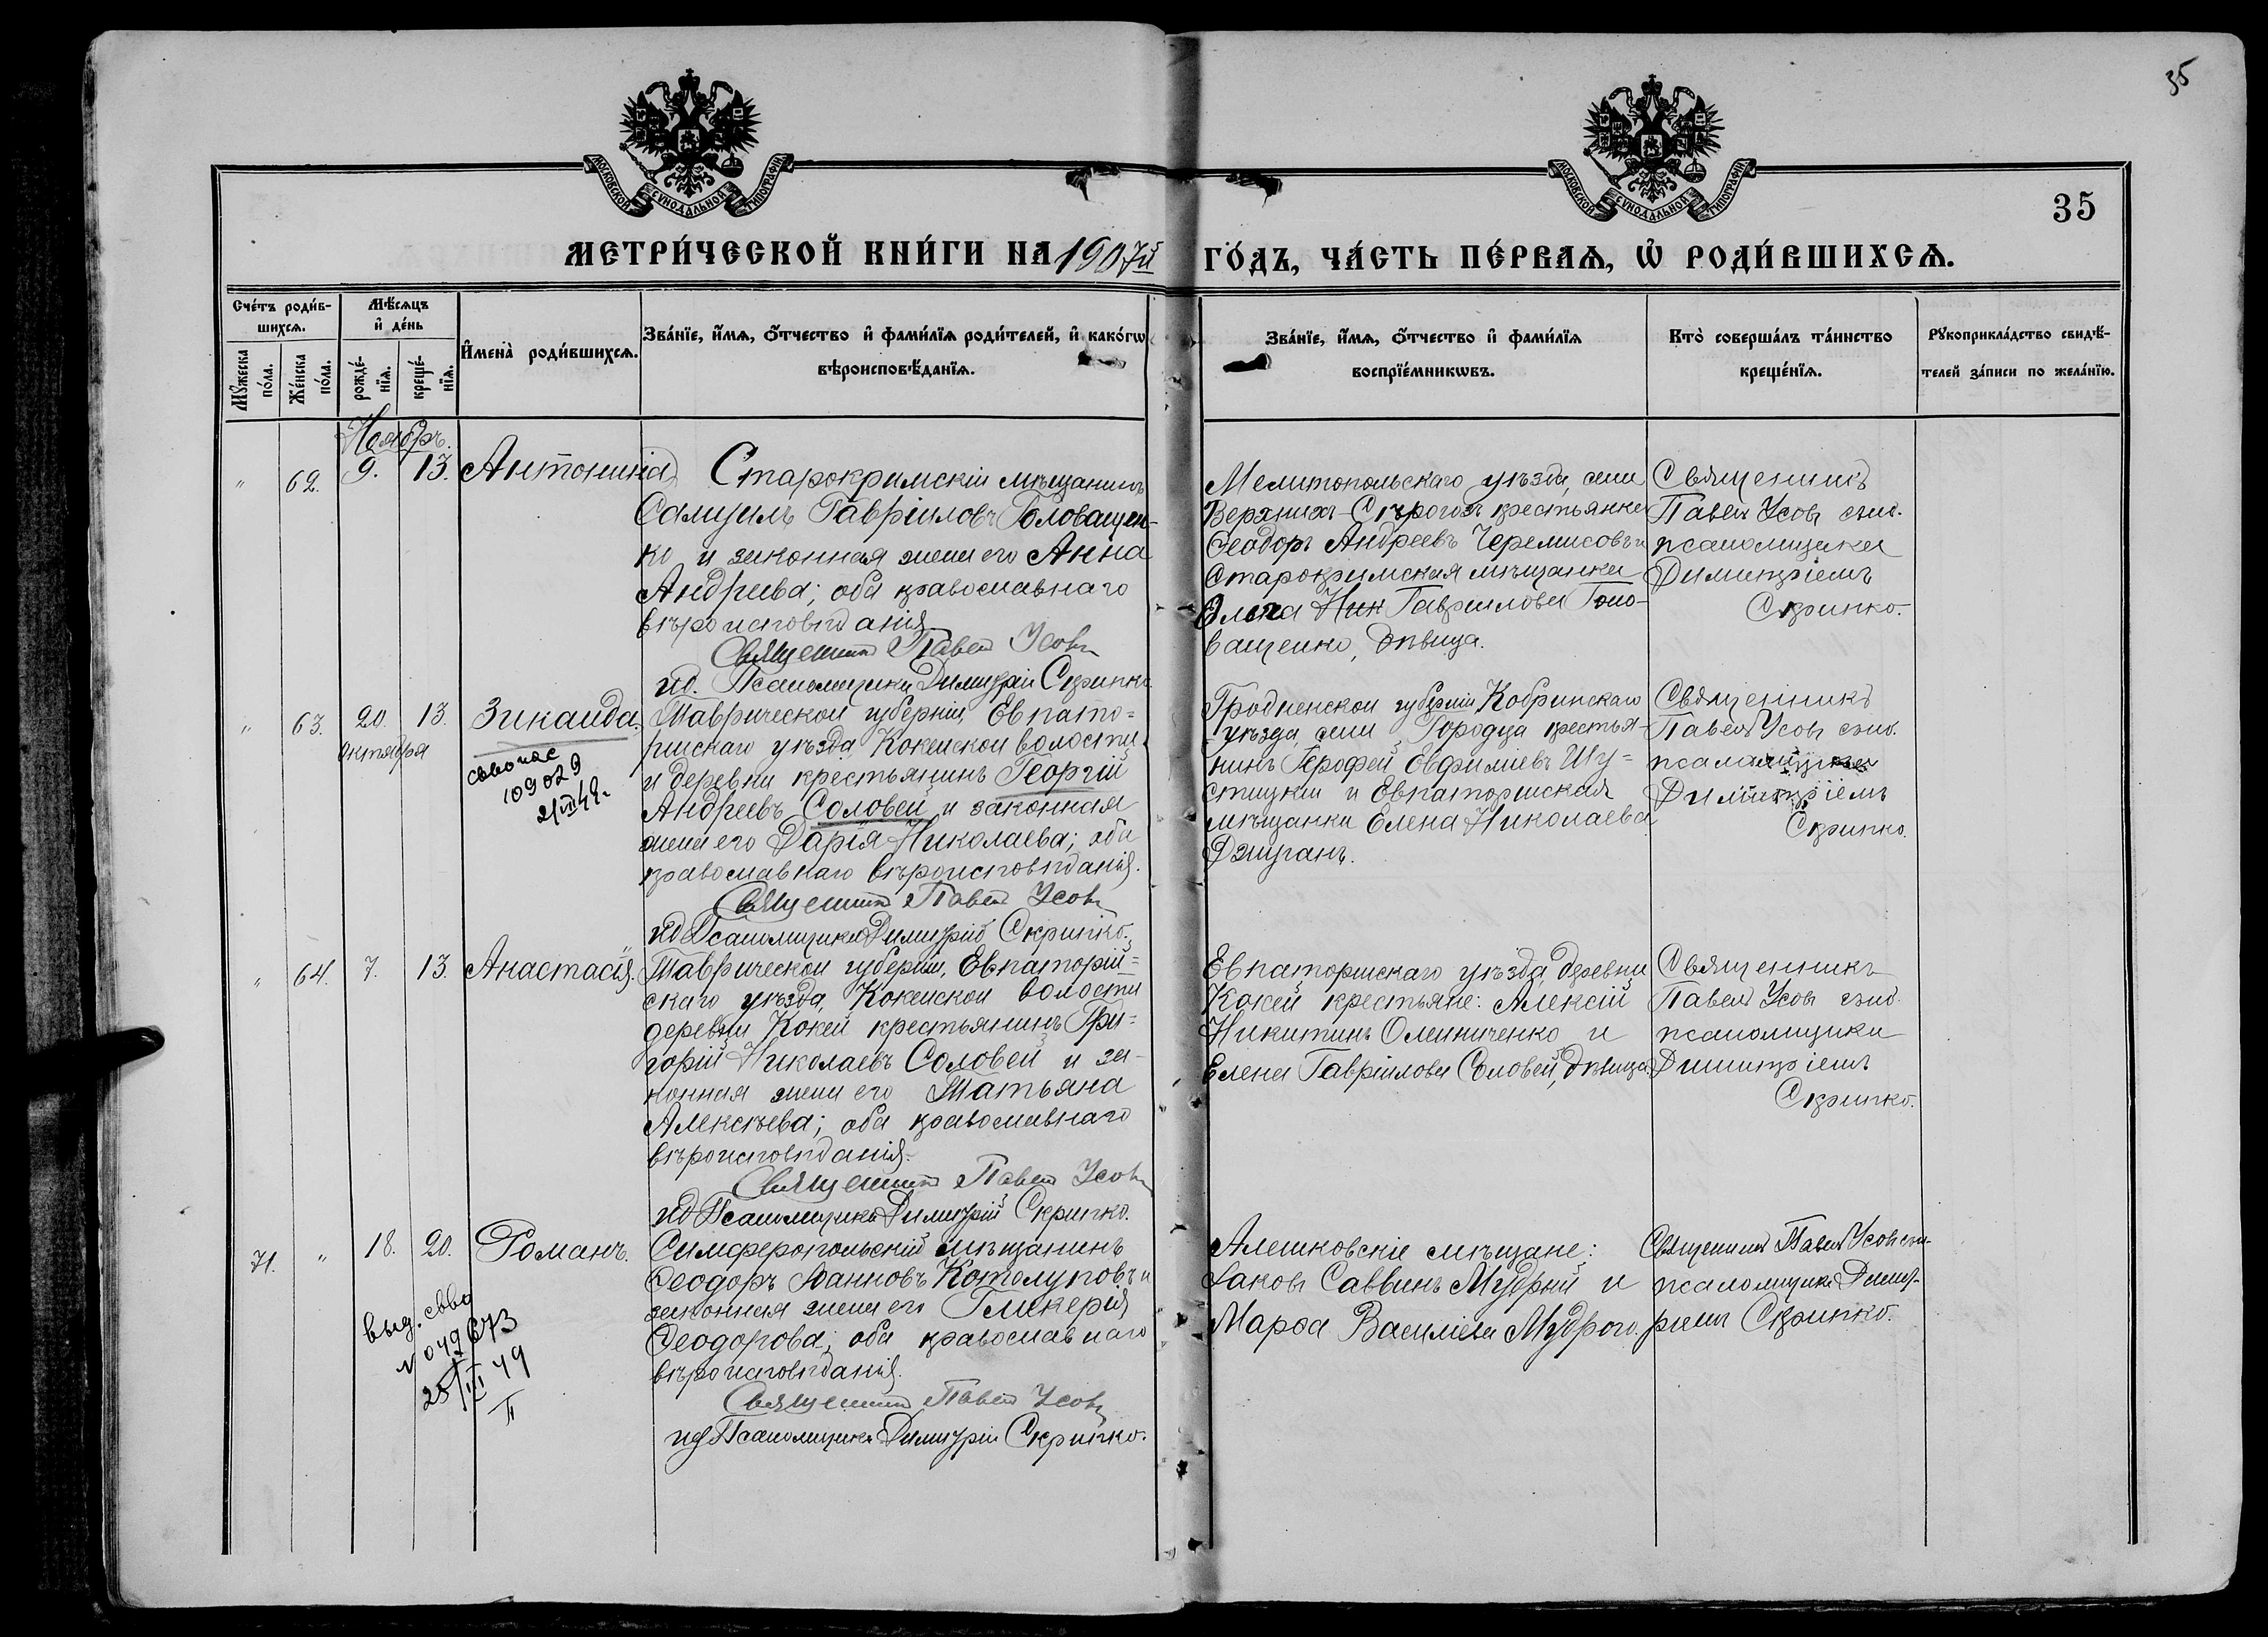 35
МОСКОВСКОЙ СѴНОДАЛЬНОЙ ТИПОГРАФІИ
МОСКОВСКОЙ СѴНОДАЛЬНОЙ ТИПОГРАФІИ
35
МЕТРИ́ЧЕСКОЙ КНИ́ГИ НА 1907й ГО́ДЪ, ЧА́СТЬ ПЕ́РВАѦ, Ѡ҆ РОДИ́ВШИХСѦ.
Сче́тъ роди́в-
шихсѧ.
Мꙋ́жеска по́ла.
Же́нска по́ла.
Мѣ́сѧцъ
и҆ де́нь
рожде́-
нїѧ.
креще́-
нїѧ.
И҆мена̀ роди́вшихсѧ.
Зва́нїе, и҆́мѧ, ѻ҆́тчество и҆ фами́лїѧ роди́телей, и҆ како́гѡ
вѣроисповѣ́данїѧ.
Зва́нїе, и҆́мѧ, ѻ҆́тчество и҆ фами́лїѧ
воспрїе́мникѡвъ.
Кто̀ соверша́лъ та́инство
креще́нїѧ.
Рꙋкоприкла́дство свидѣ́-
телей за́писи по жела́нїю.
Ноябрь.
" 62. 9. 13. Антонина
Старокримскій мѣщанинъ
Самуилъ Гавріиловъ Головащен-
ко и законная жена его Анна
Андреева; оба православнаго
вѣроисповѣданія.
Священникъ Павелъ Усовъ
ид. Псаломщика Димитрій Скрипко
Мелитопольскаго уѣзда, села
Верхнихъ-Сѣрогозъ крестьянинъ
Ѳеодоръ Андреевъ Черемисовъ и
Старокримская мѣщанка
Ольга Ник Гавріилова Голо-
ващенко, дѣвица.
Священникъ
Павелъ Усовъ съ ид.
псаломщика
Димитріемъ
Скрипко.
" 63. 20. 13. Зинаида.
октября
свво пас
109029
2/VII 49 г.
Таврической губерніи, Евпато=
рійскаго уѣзда Кокейской волости
и деревни крестьянинъ Георгій
Андреевъ Соловей и законная
жена его Дарія Николаева; оба
православнаго вѣроисповѣданія.
Священникъ Павелъ Усовъ
ид Псаломщика Димитрій Скрипко.
Гродненской губерніи Кобринскаго
уѣзда, села Городца крестья-
нинъ Іерофей Евфиміевъ Шу=
стицкій и Евпаторійская
мѣщанка Елена Николаева
Джуганъ.
Священникъ
Павелъ Усовъ съ ид.
псаломщика
Димитріемъ
Скрипко.
" 64. 7. 13. Анастасія.
Таврической губерніи, Евпаторій=
скаго уѣзда, Кокейской волости
деревни Кокей крестьянинъ Гри=
горій Николаевъ Соловей и за-
конная жена его Татьяна
Алексѣева; оба православнаго
вѣроисповѣданія.
Священникъ Павелъ Усовъ
ид Псаломщика Димитрій Скрипко.
Евпаторійскаго уѣзда, деревни
Кокей крестьяне: Алексій
Никитинъ Олейниченко и
Елена Гавріилова Соловей, дѣвица.
Священникъ
Павелъ Усовъ съ ид.
псаломщика
Димитріемъ
Скрипко.
71. " 18. 20. Романъ.
выд. свво
N 049673
25/III 49
Симферопольскій мѣщанинъ
Ѳеодоръ Іоанновъ Котолуповъ и
законная жена его Гликерія
Ѳеодорова; оба православнаго
вѣроисповѣданія.
Священникъ Павелъ Усовъ
ид Псаломщика Димитрій Скрипко.
Алешковскіе мѣщане:
Іаковъ Саввинъ Мудрый и
Марѳа Василіева Мудрого.
Священникъ Павелъ Усовъ съ ид
псаломщика Димит-
ріемъ Скрипко.